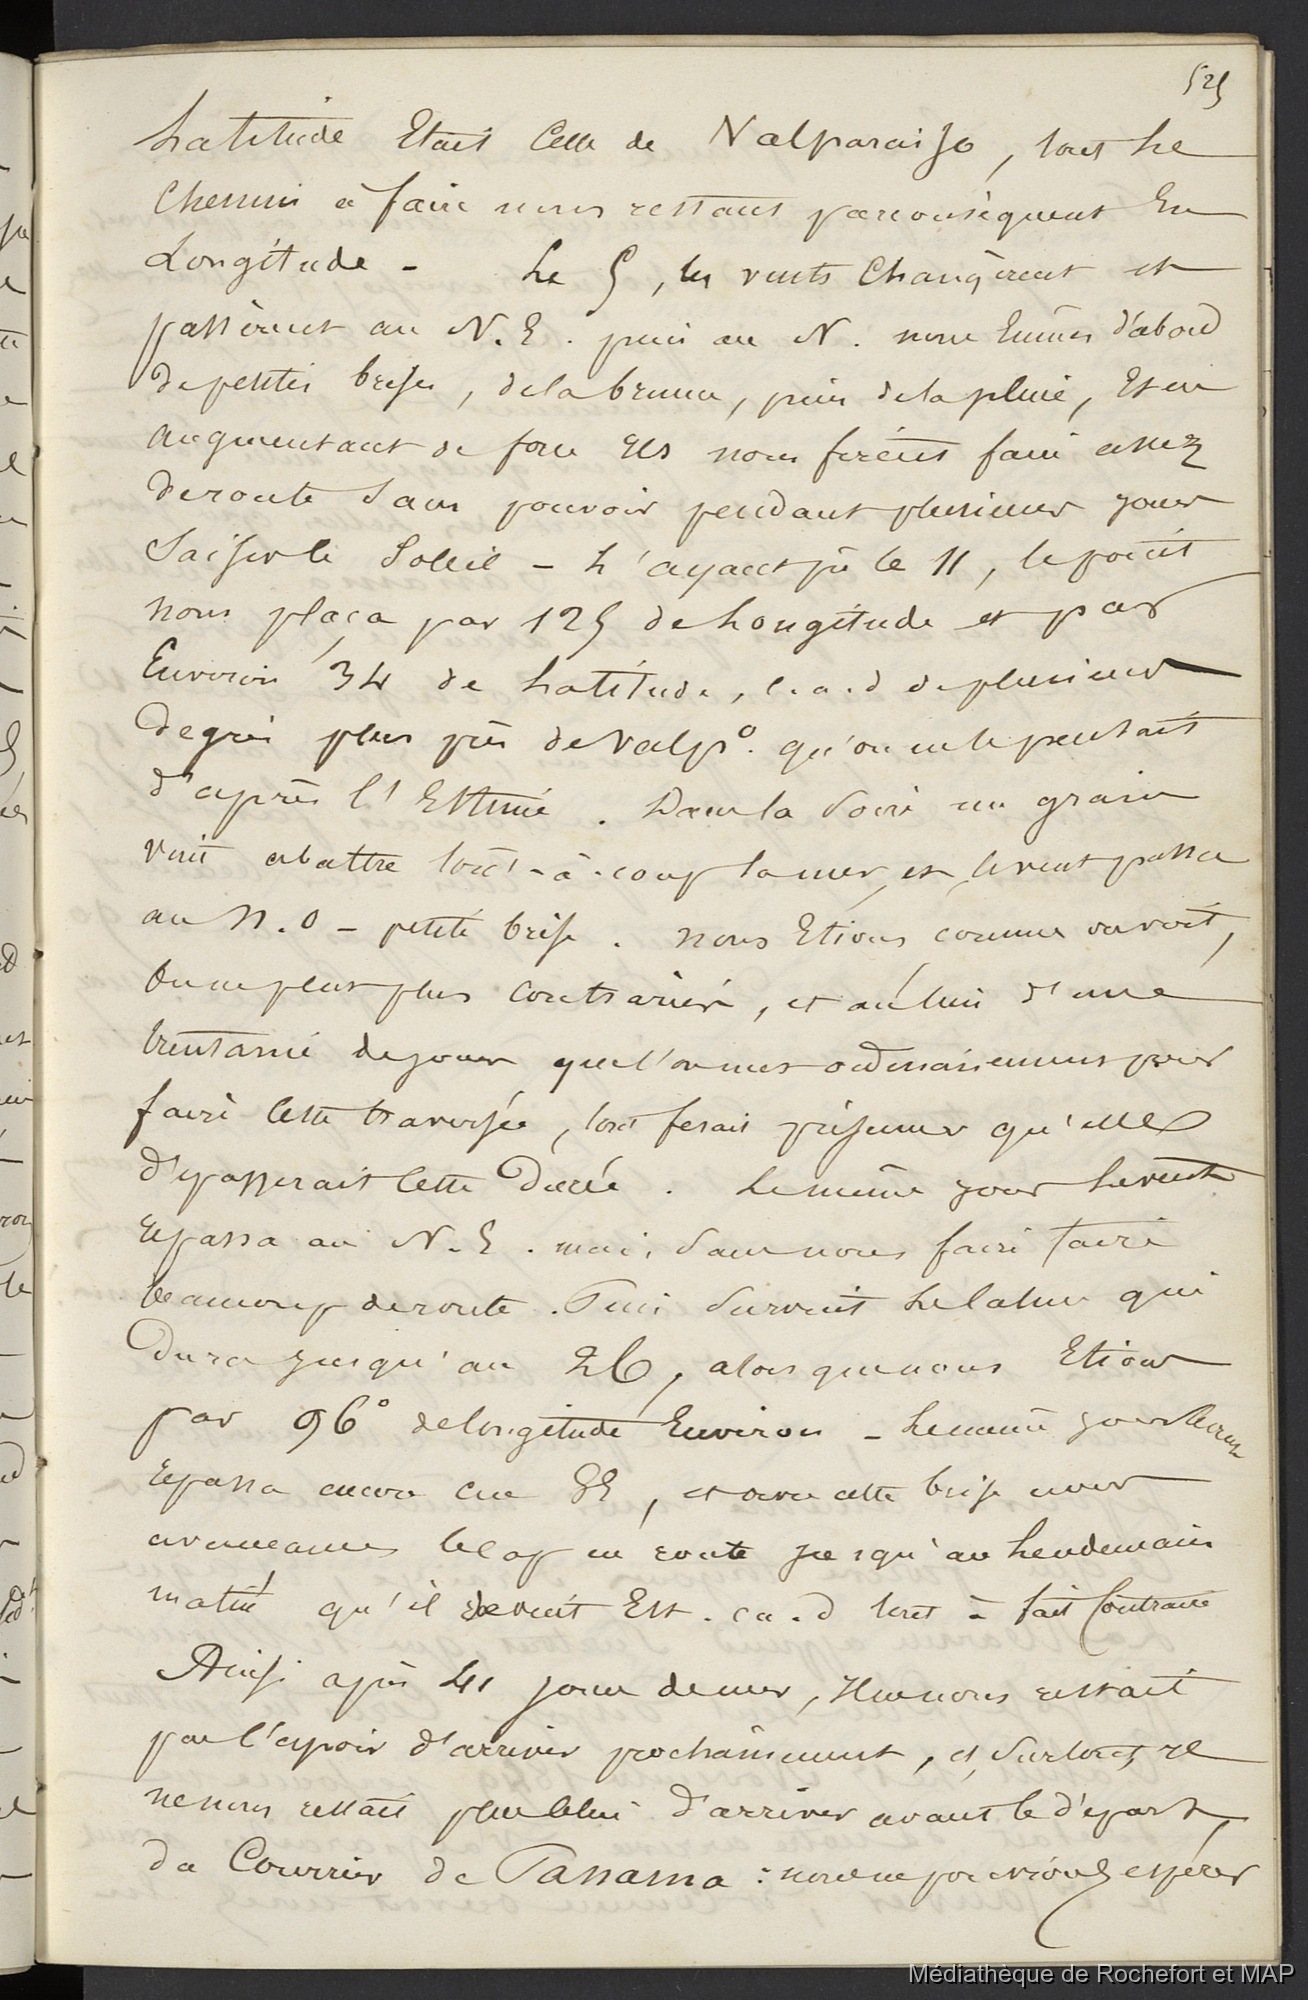 525
Latitude Etait Celle de Valparaiso, tout Le
Chemin à faire nous restant parconséquent En
Longitude - Le 5, les vents Changèrent et
passèrent au N.E. puis au N. nous Eumes d'abord
de petites brises, dela brume, puis dela pluie, Et en
augmentant de force Ils nous firent faire assez
deroute Sans pouvoir pendant plusieurs jours
Saisir le Soleil - L'ayant pû le 11, le point
nous plaça par 125 de Longitude et par
Environ 34 de Latitude, c.a.d de plusieurs
Degrés plus près de Valpo. qu'on ne le pensait
d'après l'Estime. Dans la Soirée un grain
vint abattre tout-à-coup la mer, et le vent passa
au N.O - petite brise. nous Etions comme on voit,
On ne peut plus contrariés, et au lieu d'une
trentaine de jours que l'on met ordinairement pour
faire Cette traversée, tout fesait présumer qu'elle
dépasserait Cette Durée. Le même jour Le vent
repassa au N.E. mais, Sans nous faire faire
beaucoup deroute. Puis Survint Le calme qui
Dura jusqu'au 26, alors que nous Etions
par 96° de longitude Environ - Le même jour le vent
repassa encore au SE, et avec cette brise nous
avançames le cap en route jusqu'au Lendemain
matin qu'il devint Est. ca.d tout à fait Contraire
Ainsi après 41 jours de mer, Il ne nous restait
pas l'espoir d'arriver prochainement, et, Surtout, Il
ne nous restait plus Celui d'arriver avant le départ
du Courrier de Panama : nous ne pouvions espérer
Médiathèque de Rochefort et MAP